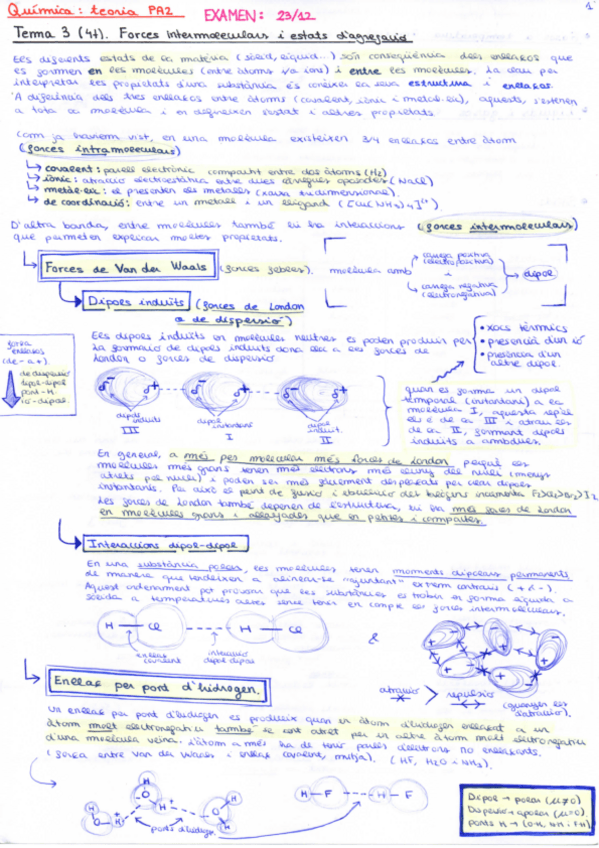 Química: teoria PA2
EXAMEN: 23/12
1
Tema 3 (4t). Forces intermoleculars i estats d'agregació
Els diferents estats de la matèria (sòlid, líquid...) són conseqüència dels enllaços que
es formen en les molècules (entre àtoms i/o ions) i entre les molècules. La clau per
interpretar les propietats d'una substància és conèixer la seva estructura i enllaços.
A diferència dels tres enllaços entre àtoms (covalent, iònic i metàl·lic), aquests,
a tota la molècula i en altres propietats.
Com ja havíem vist, en una molècula existeixen 3/4 enllaços entre àtom
(forces intramoleculars)
↳ covalent: parell electrònic compartit entre dos àtoms (H2)
↳ iònic: atracció electrostàtica entre dues càrregues oposades (NaCl)
↳ metàl·lic: el presenten els metalls (xarxa tridimensional).
↳ de coordinació: entre un metall i un lligand ([Cu(NH3)4]2+)
D'altra banda, entre molècules també hi ha interaccions (forces intermoleculars)
que permeten explicar moltes propietats.
Forces de Van der Waals (forces febles).
molècula amb
càrrega positiva
(electropositiva)
i
càrrega negativa
(electronegativa)
dipol
Dipols induïts (forces de London
o de dispersió)
força
enllaços
(de - a +).
de dispersió
dipol-dipol
pont-H
ió-dipol
Els dipols induïts en molècules neutres es poden produir per
La formació de dipols induïts dona lloc a les forces de
London o forces de dispersió
• xocs tèrmics
• presència d'un ió
• presència d'un
altre dipol.
δ- δ+
dipol
induït
III
dipol
instantani
I
dipol
induït.
II
quan es forma un dipol
temporal (instantani) a la
molècula I, aquesta repèl
els e- de la III i atrau els
de la II, formant dipols
induïts a ambdues.
En general, a més pes molecular més forces de London perquè les
molècules més grans tenen més electrons més lluny del nucli (menys
atrets pel nucli) i poden ser més fàcilment desplaçats per crear dipols
instantanis. Per això el punt de fusió i ebullició dels halògens incrementa F2>Cl2>Br2>I2.
Les forces de London també depenen de l'estructura, hi ha més forces de London
en molècules grans i allargades que en petites i compactes.
Interaccions dipol-dipol
En una substància polar, les molècules tenen moments dipolars permanents
de manera que tendeixen a alinear-se "ajuntant" extrem contraris (+ i -).
Aquest ordenament pot provocar que les substàncies es trobin en forma líquida o
sòlida a temperatures altes sense tenir en compte les forces intermoleculars.
H — Cl
H — Cl
enllaç
covalent
interacció
dipol-dipol
&
atracció > repulsió
(guanyen les
d'atracció).
Enllaç per pont d'hidrogen.
Un enllaç per pont d'hidrogen es produeix quan un àtom d'hidrogen enllaçat a un
àtom molt electronegatiu també se sent atret per un altre àtom molt electronegatiu
d'una molècula veïna. L'àtom a més ha de tenir parells d'electrons no enllaçants.
(força entre Van der Waals i enllaç covalent, mitja). (HF, H2O i NH3).
ponts d'hidrogen
H — F
H — F
Dipol → polar (μ≠0)
Dispersió → apolar (μ=0)
Ponts H → (O-H, N-H, F-H)